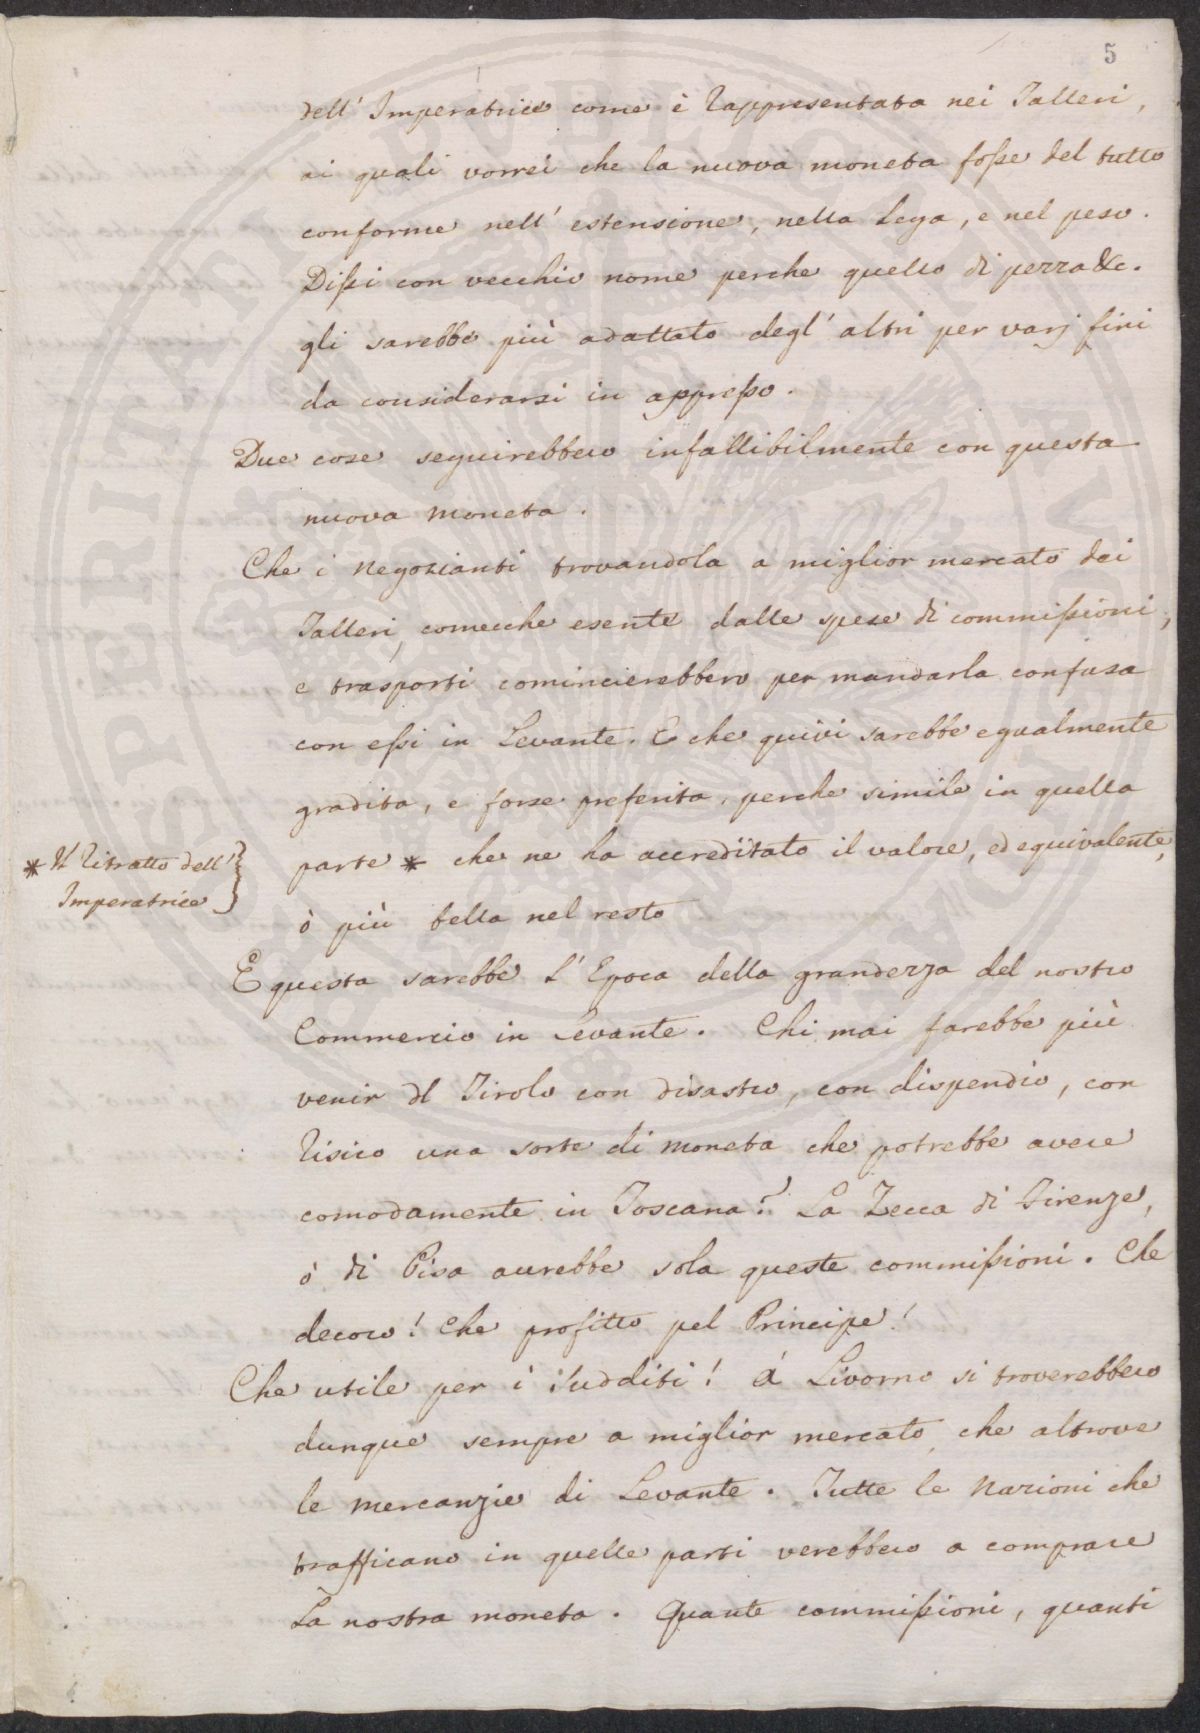 5
dell' Imperatrice come è rappresentata nei Talleri,
ai quali vorrei che la nuova moneta fosse del tutto
conforme nell' estensione, nella Lega, e nel peso.
Dissi con vecchio nome perche quello di pezza &c.
gli sarebbe più adattato degl' altri per varj fini
da considerarsi in appresso.
Due cose seguirebbero infallibilmente con questa
nuova moneta.
Che i Negozianti trovandola a miglior mercato dei
Talleri, comecche esente dalle spese di commissioni,
e trasporti comincierebbero per mandarla confusa
con essi in Levante. E che quivi sarebbe egualmente
gradita, e forse preferita, perche simile in quella
parte * che ne ha accreditato il valore, ed equivalente,
* Il Ritratto dell'
Imperatrice
ò più bella nel resto
E questa sarebbe l' Epoca della grandezza del nostro
Commercio in Levante. Chi mai farebbe più
venir dl Tirolo con disastro, con dispendio, con
risico una sorte di moneta che potrebbe avere
comodamente in Toscana? La Zecca di Firenze,
ò di Pisa aurebbe sola queste commissioni. Che
decoro! Che profitto pel Principe!
Che utile per i Sudditi! á Livorno si troverebbero
dunque sempre a miglior mercato che altrove
le mercanzie di Levante. Tutte le Nazioni che
trafficano in quelle parti verebbero a comprare
La nostra moneta. Quante commissioni, quanti
PROSPERITATI PVBLICAE